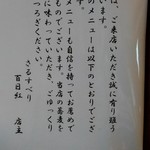 は、ご来店いただき誠に有り難う
す。
のメニューは以下のとおりでござ
メニューも自信を持ってお薦めで
ものでございます。当店の蕎麦を
に味わっていただき、ごゆっくり
つろぎください。
さるすべり
百日紅　店主